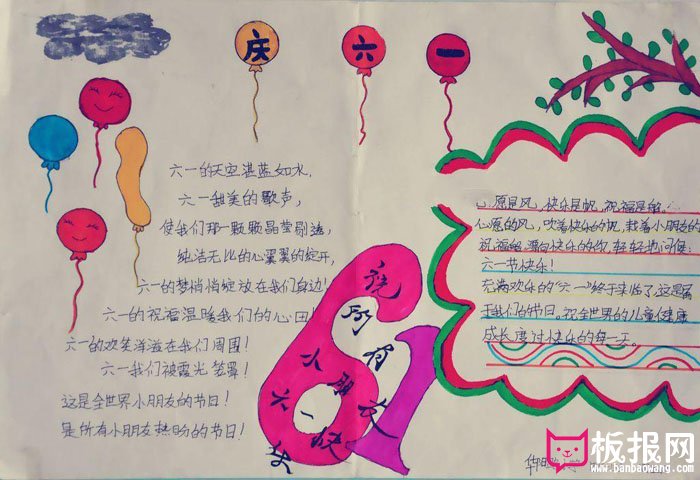 庆六一
六一的天空湛蓝如水,
六一甜美的歌声,
使我们那一颗颗晶莹剔透,
纯洁无比的心翼翼的绽开,
六一的梦悄悄绽放在我们身边!
六一的祝福温暖我们的心田!
六一的欢笑洋溢在我们周围!
六一我们被霞光笼罩!
这是全世界小朋友的节日!
是所有小朋友热盼的节日!
61
祝
所有
小朋友
六一快
乐
心愿是风,快乐是帆,祝福是船,
心愿的风,吹着快乐的帆,载着小朋友的
祝福船,漂向快乐的你,轻轻地问候:
六一节快乐!
充满欢乐的"六一"终于来临了,这是属
于我们的节日,祝全世界的儿童健康
成长,度过快乐的每一天。
板报网
www.banbaowang.com